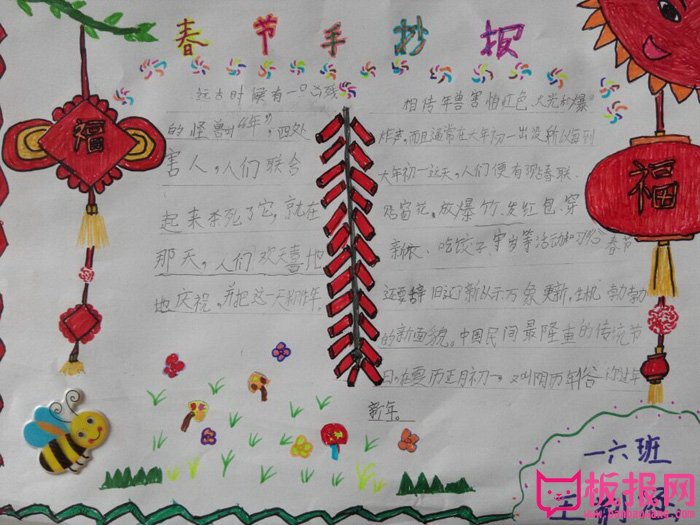 春节手抄报
远古时候有一凶残
的怪兽叫"年",四处
害人,人们联合
起来杀死了它,就在
那天,人们欢天喜地
地庆祝,并把这一天称作年。
相传年兽害怕红色、火光和爆
炸声,而且通常在大年初一出没,所以每到
大年初一这天,人们便有贴春联、
贴窗花、放爆竹、发红包、穿
新衣、吃饺子、守岁等活动和习俗。春节
还要辞旧迎新以示万象更新,生机勃勃
的新面貌。中国民间最隆重的传统节
日,在
历正月初一,又叫阴历年,俗
过年
新年。
福
福
一六班
板报网